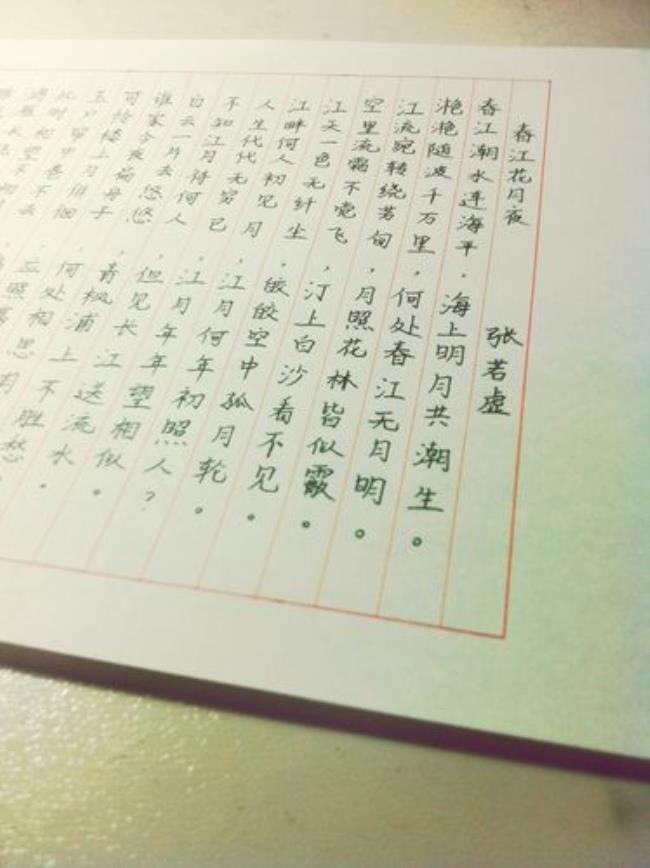 春江花月夜 张若虚
春江潮水连海平，海上明月共潮生。
滟滟随波千万里，何处春江无月明。
江流宛转绕芳甸，月照花林皆似霰。
空里流霜不觉飞，汀上白沙看不见。
江天一色无纤尘，皎皎空中孤月轮。
江畔何人初见月，江月何年初照人？
人生代代无穷已，江月年年望相似。
不知江月待何人，但见长江送流水。
白云一片去悠悠，青枫浦上不胜愁。
谁家今夜扁舟子，何处相思明
可怜楼上月徘徊，应照
玉户帘中卷不去
此时相望不相